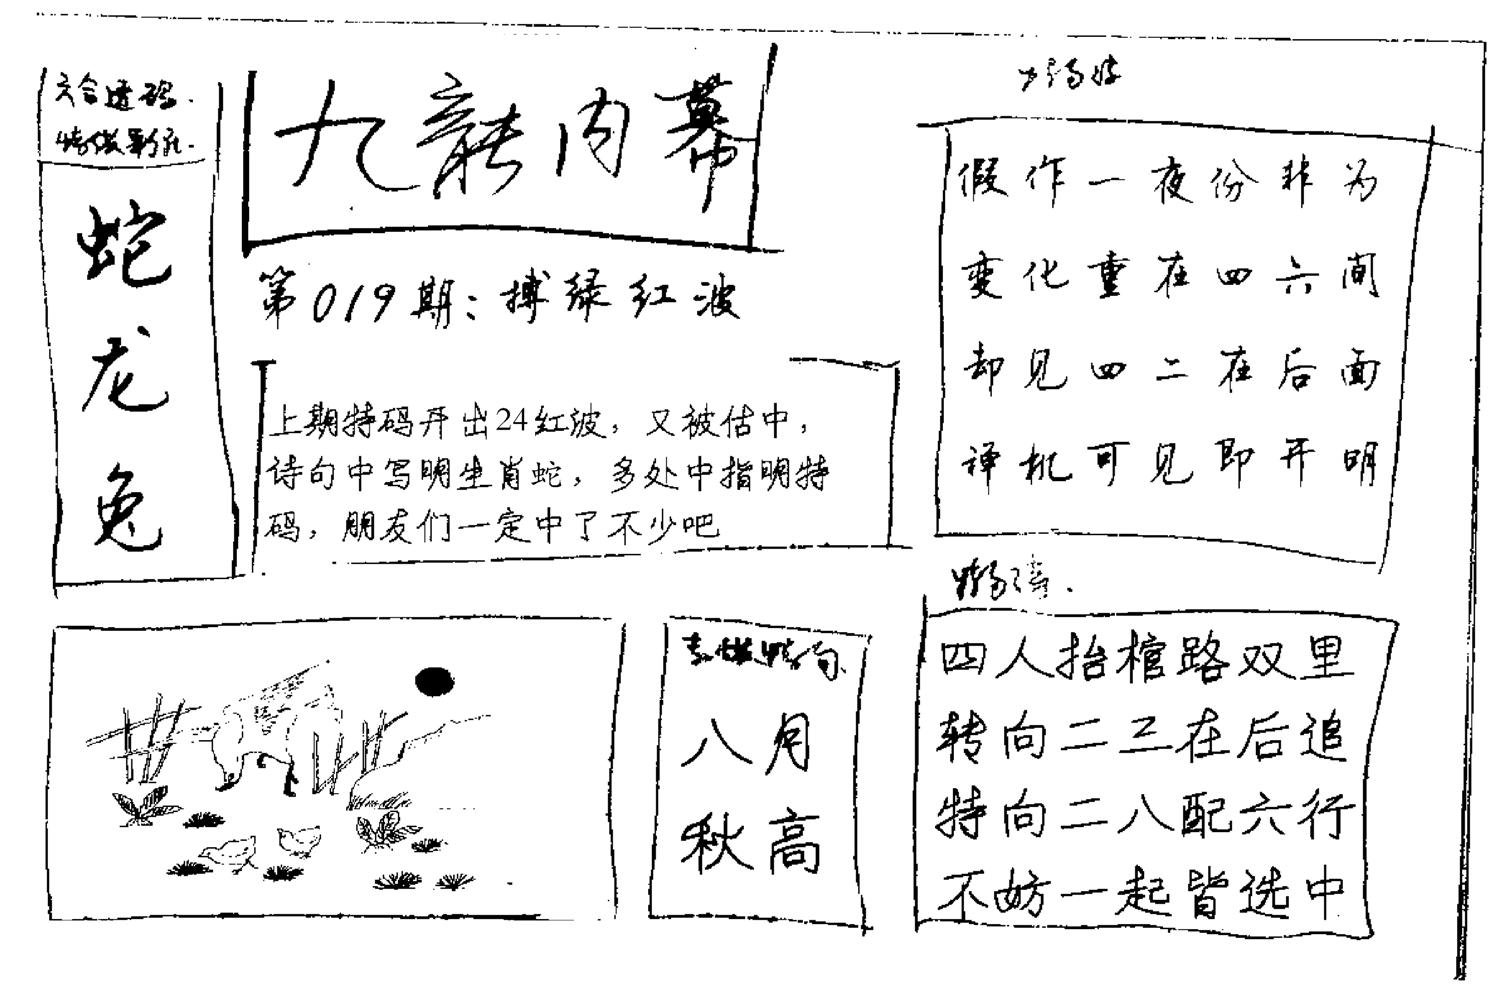 六合透码.
蛇
龙
兔
九龍内幕
第019期：搏绿红波
上期特码开出24红波，又被估中，
诗句中写明生肖蛇，多处中指明特
码，朋友们一定中了不少吧
假作一夜份非为
变化重在四六间
却见四二在后面
译机可见即开明
八月
秋高
四人抬棺路双里
转向二三在后追
特向二八配六行
不妨一起皆选中